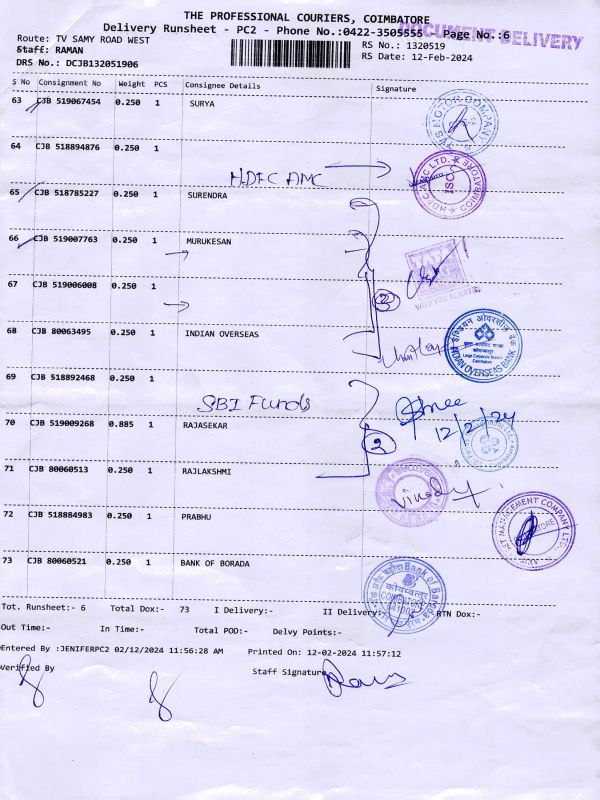 THE PROFESSIONAL COURIERS, COIMBATORE
Delivery Runsheet - PC2 - Phone No.:0422-3505555 Page No.:6
DOCUMENT DELIVERY
Route: TV SAMY ROAD WEST
RS No.: 1320519
Staff: RAMAN
RS Date: 12-Feb-2024
DRS No.: DCJB132051906
S No Consignment No Weight PCS Consignee Details Signature
63 CJB 519067454 0.250 1 SURYA
64 CJB 518894876 0.250 1
HDFC AMC
65 CJB 518785227 0.250 1 SURENDRA
66 CJB 519007763 0.250 1 MURUKESAN
67 CJB 519006008 0.250 1
68 CJB 80063495 0.250 1 INDIAN OVERSEAS
INDIAN OVERSEAS BANK
69 CJB 518892468 0.250 1
SBI Funds
12/2/24
70 CJB 519009268 0.885 1 RAJASEKAR
2
71 CJB 80060513 0.250 1 RAJLAKSHMI
72 CJB 518884983 0.250 1 PRABHU
73 CJB 80060521 0.250 1 BANK OF BORADA
Tot. Runsheet:- 6 Total Dox:- 73 I Delivery:- II Delivery:- RTN Dox:-
Out Time:- In Time:- Total POD:- Delvy Points:-
Entered By :JENIFERPC2 02/12/2024 11:56:28 AM Printed On: 12-02-2024 11:57:12
Verified By Staff Signature